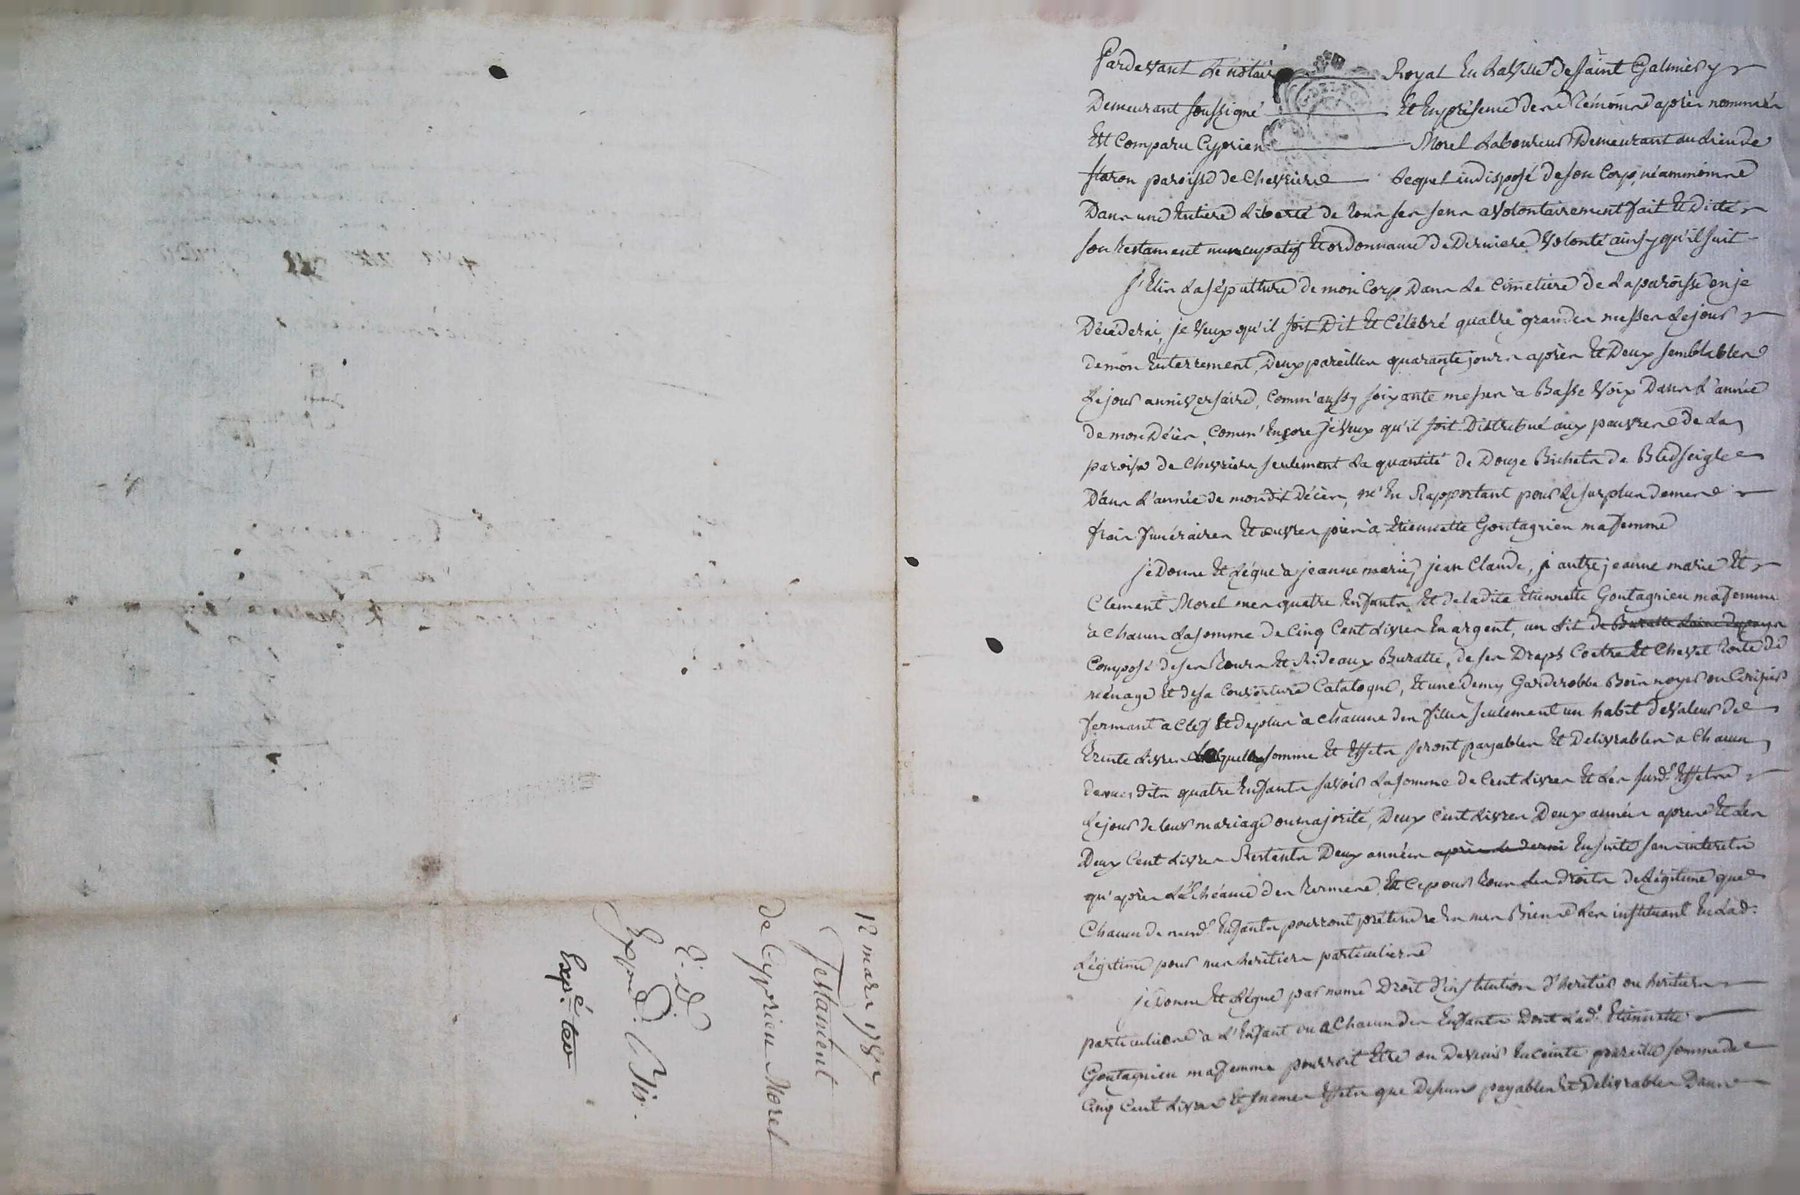 12 mars 1782
Testament
de Cyprien Morel
C. D.
Expéd.
Exp.é
Pardevant le notaire Royal En la Ville de saint Galmier y
Demeurant soussigné Et En présence des témoins après nommés
Est Comparu Cyprien Morel Laboureur Demeurant au lieu de
paroisse de Chevrieres lequel indisposé de son Corp, néammoins
Dans une Entiere Liberté de tous ses sens a Volontairement fait Et Dicté
son testament nuncupatif Et ordonnance de Derniere Volonté ainsy qu'il suit
J'Elis la sépulture de mon Corp Dans Le Cimetiere de La paroisse ou je
Décéderai, je Veux qu'il soit Dit Et Célébré quatre grandes messes le jour
de mon Enterrement, Deux pareilles quarante jours après Et Deux semblables
le jour anniversaire, Comm'aussy soixante messes a Basse Voix Dans L'année
de mon Décès, Comm'Encore je Veux qu'il soit Distribué aux pauvres de La
paroisse de Chevrieres seulement La quantité de Douze Bichets de Bled seigle
Dans L'année de mondit Décès, m'En Rapportant pour le surplus de mes
frais funéraires Et œuvres pies à Etiennette Goutagnieu ma femme
je Donne Et Légue a jeanne marie, jean Claude, autre jeanne marie Et
Clement Morel mes quatre Enfants Et de ladite Etiennette Goutagnieu ma femme
a Chacun La somme de Cinq Cent Livres En argent, un Lit de
Composé de ses tours Et Rideaux Buratte, de ses Draps Coëtre Et Chevet toile de
ménage Et de sa Couverture Catalogne, Et une Demy Garderobbe Bois noyer ou Cerisier
fermant a Clef Et de plus a Chacune des filles seulement un habit de Valeur de
trente Livres Lesquelles somme Et Effets seront payables Et Delivrables a Chacun
de mesdits quatre Enfants savoir La somme de Cent Livres Et Les susd. Effets
le jour de leur mariage ou majorité, Deux Cent Livres Deux années après Et Les
Deux Cent Livres Restants Deux années après Ensuite sans interets
qu'après L'Echéance des termes, Et Ce pour tous Les Droits de Légitime que
Chacun de mesd. Enfants pourront prétendre En mes Biens Les instituant En Lad.
Légitime pour mes heritiers particuliers
je Donne Et Légue par meme Droit d'institution d'heritier ou heritiers
particuliers à L'Enfant ou a Chacun des Enfants Dont Lad. Etiennette
Goutagnieu ma femme pourroit Etre ou Devenir Enceinte pareille somme de
Cinq Cent Livres Et memes Effets que Dessus payables Et Delivrables Dans